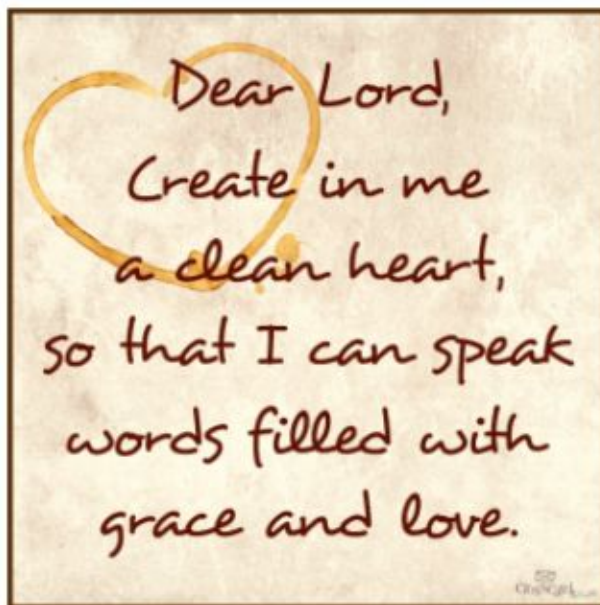 Dear Lord,
Create in me
a clean heart,
so that I can speak
words filled with
grace and love.